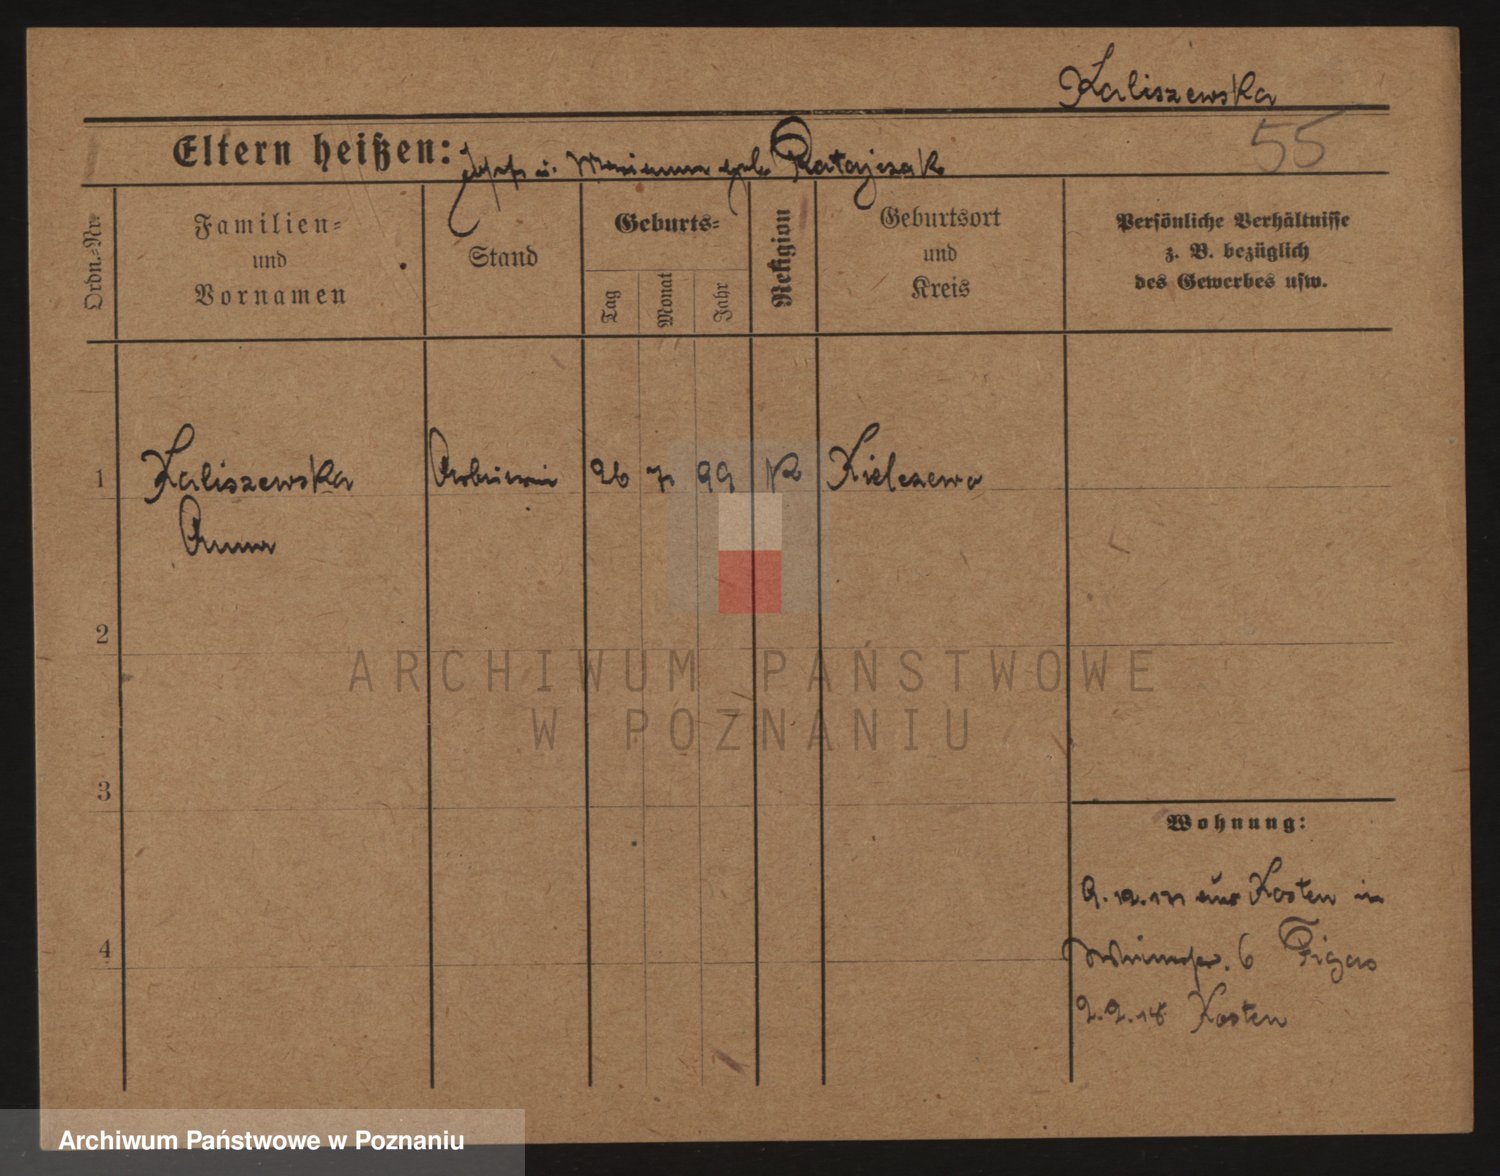 Kaliszewska
55
Eltern heißen: Josef u. Marianna geb. Ratajczak
Ordn.-Nr.
Familien-
und
Vornamen
Stand
Geburts-
Tag
Monat
Jahr
Religion
Geburtsort
und
Kreis
Persönliche Verhältnisse
z. B. bezüglich
des Gewerbes usw.
1 Kaliszewska Arbeiterin 26 7 99 K Kielczewo
Anna
2
ARCHIWUM PAŃSTWOWE
W POZNANIU
3
Wohnung:
9.12.17 aus Kosten in
4
6 Figas
2.2.18 Kosten
Archiwum Państwowe w Poznaniu